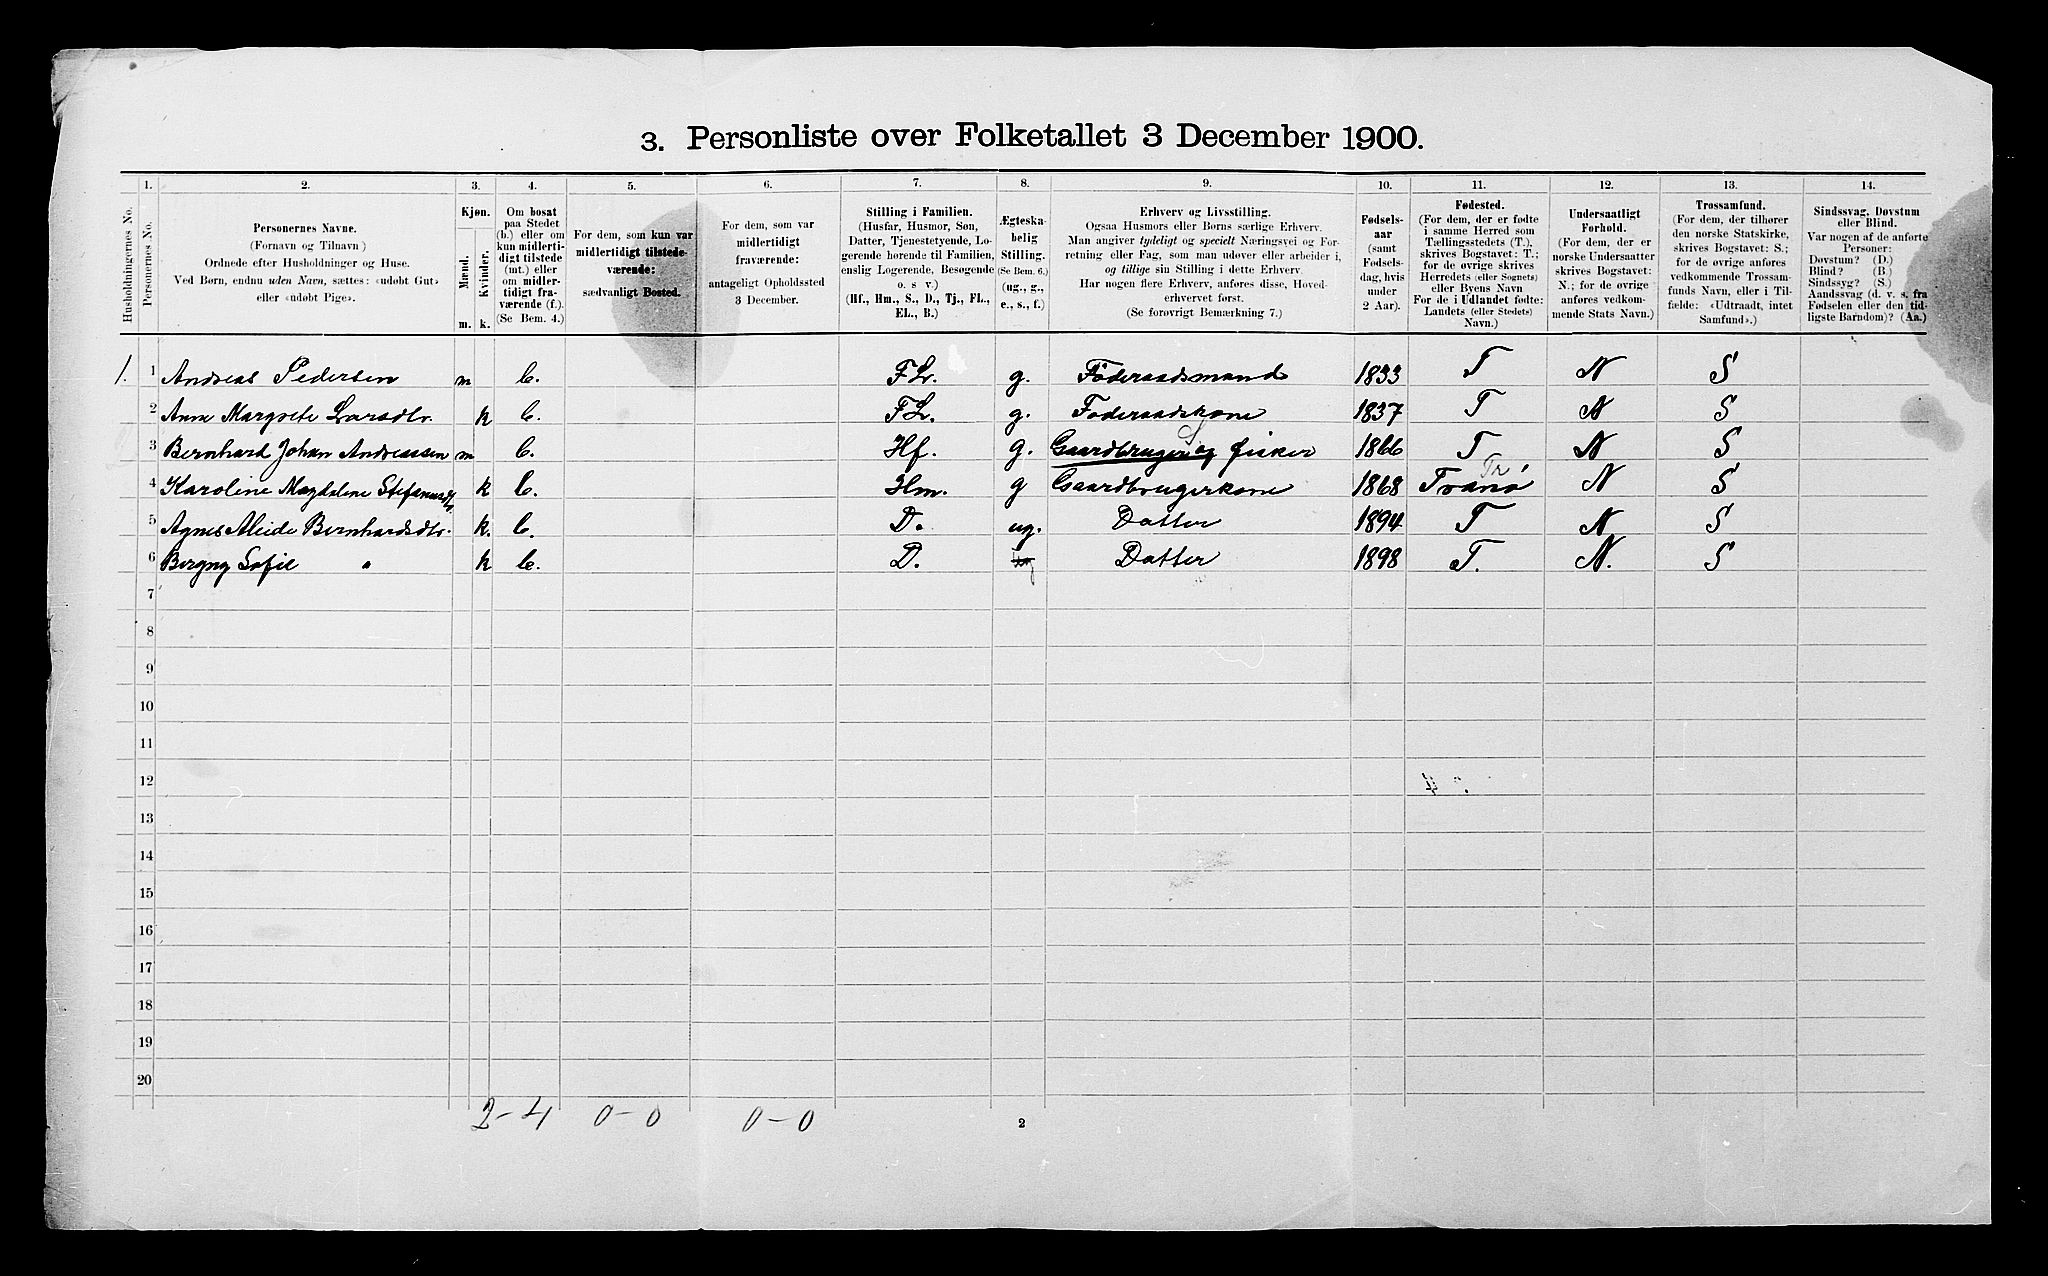 3. Personliste over Folketallet 3 December 1900.
Husholdningernes No.
1.
Personernes No.
2.
Personernes Navne.
(Fornavn og Tilnavn)
Ordnede efter Husholdninger og Huse.
Ved Børn, endnu uden Navn, sættes: «udøbt Gut»
eller «udøbt Pige».
3.
Kjøn.
Mænd.
Kvinder.
m. k.
4.
Om bosat
paa Stedet
(b.) eller om
kun midlerti-
digt tilstede
(mt.) eller
om midler-
tidigt fra-
værende (f.).
(Se Bem. 4.)
5.
For dem, som kun var
midlertidigt tilstede-
værende:
sædvanligt Bosted.
6.
For dem, som var
midlertidigt
fraværende:
antageligt Opholdssted
3 December.
7.
Stilling i Familien.
(Husfar, Husmor, Søn,
Datter, Tjenestetyende, Lo-
gerende hørende til Familien,
enslig Logerende, Besøgende
o. s v.)
(Hf., Hm., S., D., Tj., FL.,
EL., B.)
8.
Ægteska-
belig
Stilling.
(Se Bem. 6.)
(ug., g.,
e., s., f.)
9.
Erhverv og Livsstilling.
Ogsaa Husmors eller Børns særlige Erhverv.
Man angiver tydeligt og specielt Næringsvei og For-
retning eller Fag, som man udøver eller arbeider i,
og tillige sin Stilling i dette Erhverv.
Har nogen flere Erhverv, anføres disse, Hoved-
erhvervet først.
(Se forøvrigt Bemærkning 7.)
10.
Fødsels-
aar
(samt
Fødsels-
dag, hvis
under
2 Aar).
11.
Fødested.
(For dem, der er fødte
i samme Herred som
Tællingsstedets (T.),
skrives Bogstavet: T.;
for de øvrige skrives
Herredets (eller Sognets)
eller Byens Navn
For de i Udlandet fødte:
Landets (eller Stedets)
Navn.)
12.
Undersaatligt
Forhold.
(For dem, der er
norske Undersaatter
skrives Bogstavet:
N.; for de øvrige
anføres vedkom-
mende Stats Navn.)
13.
Trossamfund.
(For dem, der tilhører
den norske Statskirke,
skrives Bogstavet: S.;
for de øvrige anføres
vedkommende Trossam-
funds Navn, eller i Til-
fælde: «Udtraadt, intet
Samfund».)
14.
Sindssvag, Døvstum
eller Blind.
Var nogen af de anførte
Personer:
Døvstum? (D.)
Blind? (B.)
Sindssyg? (S.)
Aandssvag (d. v. s. fra
Fødselen eller den tid-
ligste Barndom)? (Aa.)
1. 1 Andreas Pedersen m b. FL. g. Föderaadsmand 1833 T N S
2 Anne Margrete Larsdtr. k b. FL. g. Foderaadskone 1837 T N S
3 Bernhard Johan Andreassen m b. Hf. g. Gaardbruger og Fisker 1866 T N S
4 Karoline Magdalene Stefanusdtr. k b. Hm. g Gaardbrugerkone 1868 Tranö Tr N S
5 Agnes Aleide Bernhardsdtr. k. b. D. ug. Datter 1894 T N S
6 Bergny Sofie " k b. D. ug Datter 1898 T. N. S
7
8
9
10
11
12
13
14
15
16
17
18
19
20
2-4 0-0 0-0
2